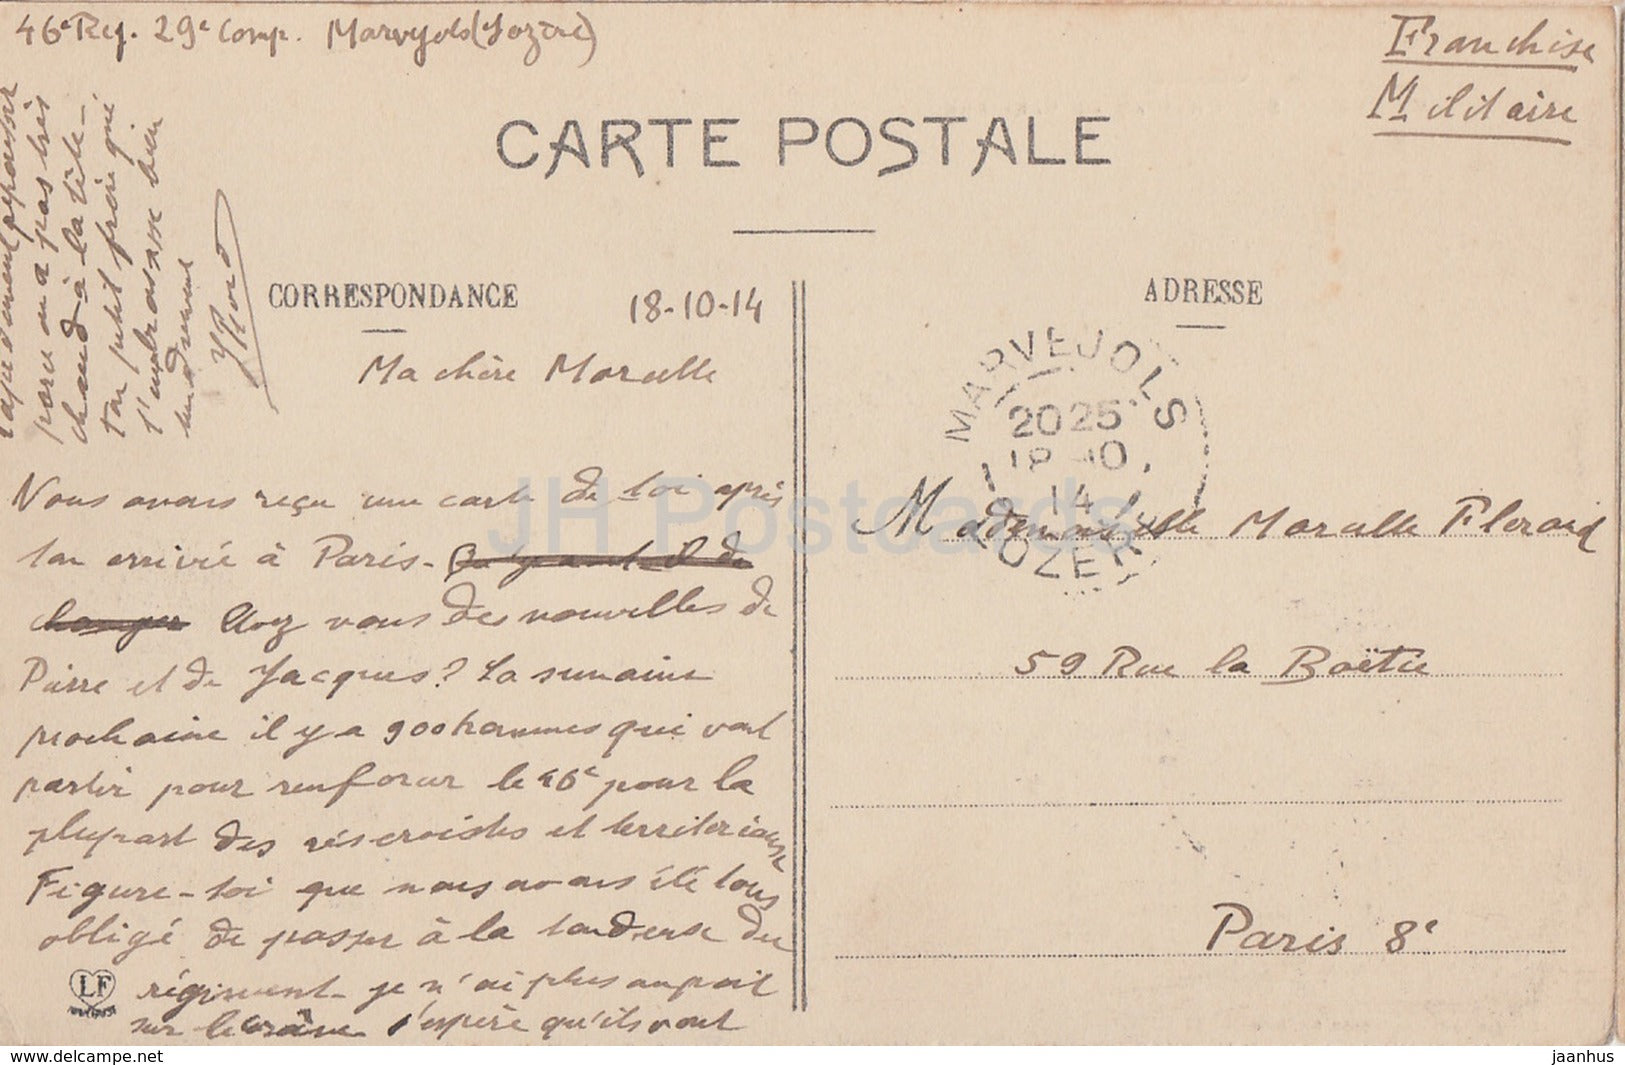 46e Reg. 29e Comp. Marvejols (Lozère)
Franchise
Militaire
CARTE POSTALE
CORRESPONDANCE
18-10-14
ADRESSE
Ma chère Marcelle
Nous avons reçu une carte de toi après
ton arrivée à Paris-
Avez vous des nouvelles de
Pierre et de Jacques? La semaine
prochaine il y a 900 hommes qui vont
partir pour renforcer le 46e pour la
plupart des réservistes et territoriaux
Figure-toi que nous avons été tous
obligé de passer à la tondeuse du
régiment - je n'ai plus un poil
sur le crâne j'espère qu'ils vont
rapidement repousser
parce on a pas très
chaud à la tête-
ton petit frère qui
t'embrasse bien
tendrement
MARVEJOLS
2025
18-10
14
LOZERE
Mademoiselle Marcelle
59 Rue la Boëtie
Paris 8e
LF
JH Postcards
www.delcampe.net
jaanhus